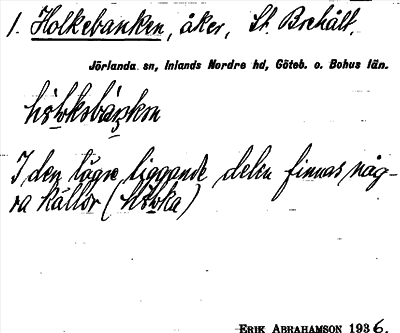 1. Holkebanken, åker, St. Brehålt.
Jörlanda sn, Inlands Nordre hd, Göteb. o. Bohus län.
I den lägre liggande delen finnas någ-
ra källor (
ERIK ABRAHAMSON 1936.